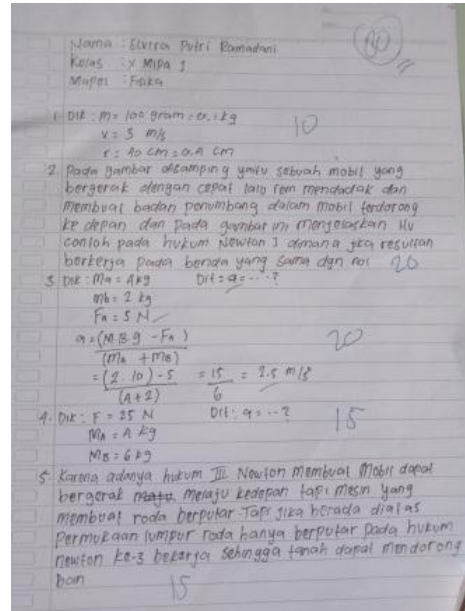 Nama : Elvira Putri Ramadani
80
Kelas : X MIPA 1
Mapel : Fisika
1. Dik : m = 100 gram = 0,1 kg
10
v = 5 m/s
r = 40 cm = 0,4 cm
2. Pada gambar disamping yaitu sebuah mobil yang
bergerak dengan cepat lalu rem mendadak dan
membuat badan penumbang dalam mobil terdorong
ke depan dan pada gambar ini menjelaskan
contoh pada hukum Newton I dimana jika resultan
berkerja pada benda yang sama dgn nol 20
3. Dik : Ma = 4 kg Dit : a = ...?
mb = 2 kg
Fa = 5 N
a = (MB g - Fa)
(Ma + MB)
20
= (2 . 10) - 5 = 15 = 2.5 m/s
(4 + 2) 6
4. Dik : F = 25 N Dit : a = ..?
15
MA = 4 kg
MB = 6 kg
5. Karena adanya hukum III Newton membuat Mobil dapat
bergerak melaju kedepan tapi mesin yang
membuat roda berputar. Tapi jika berada diatas
permukaan lumpur roda hanya berputar pada hukum
newton ke-3 bekerja sehingga tanah dapat mendorong
ban
15